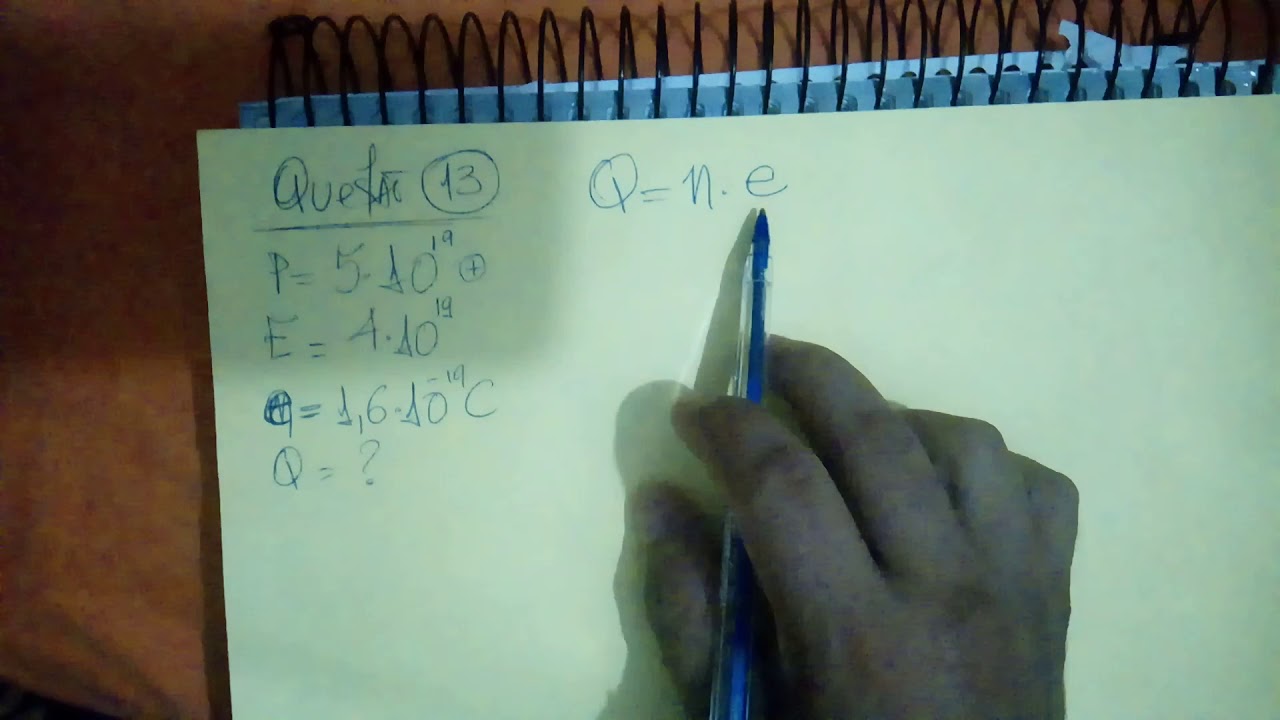 Questão 13
P = 5·10¹⁹ ⊕
E = 4·10¹⁹
q = 1,6·10⁻¹⁹C
Q = ?
Q = n·e